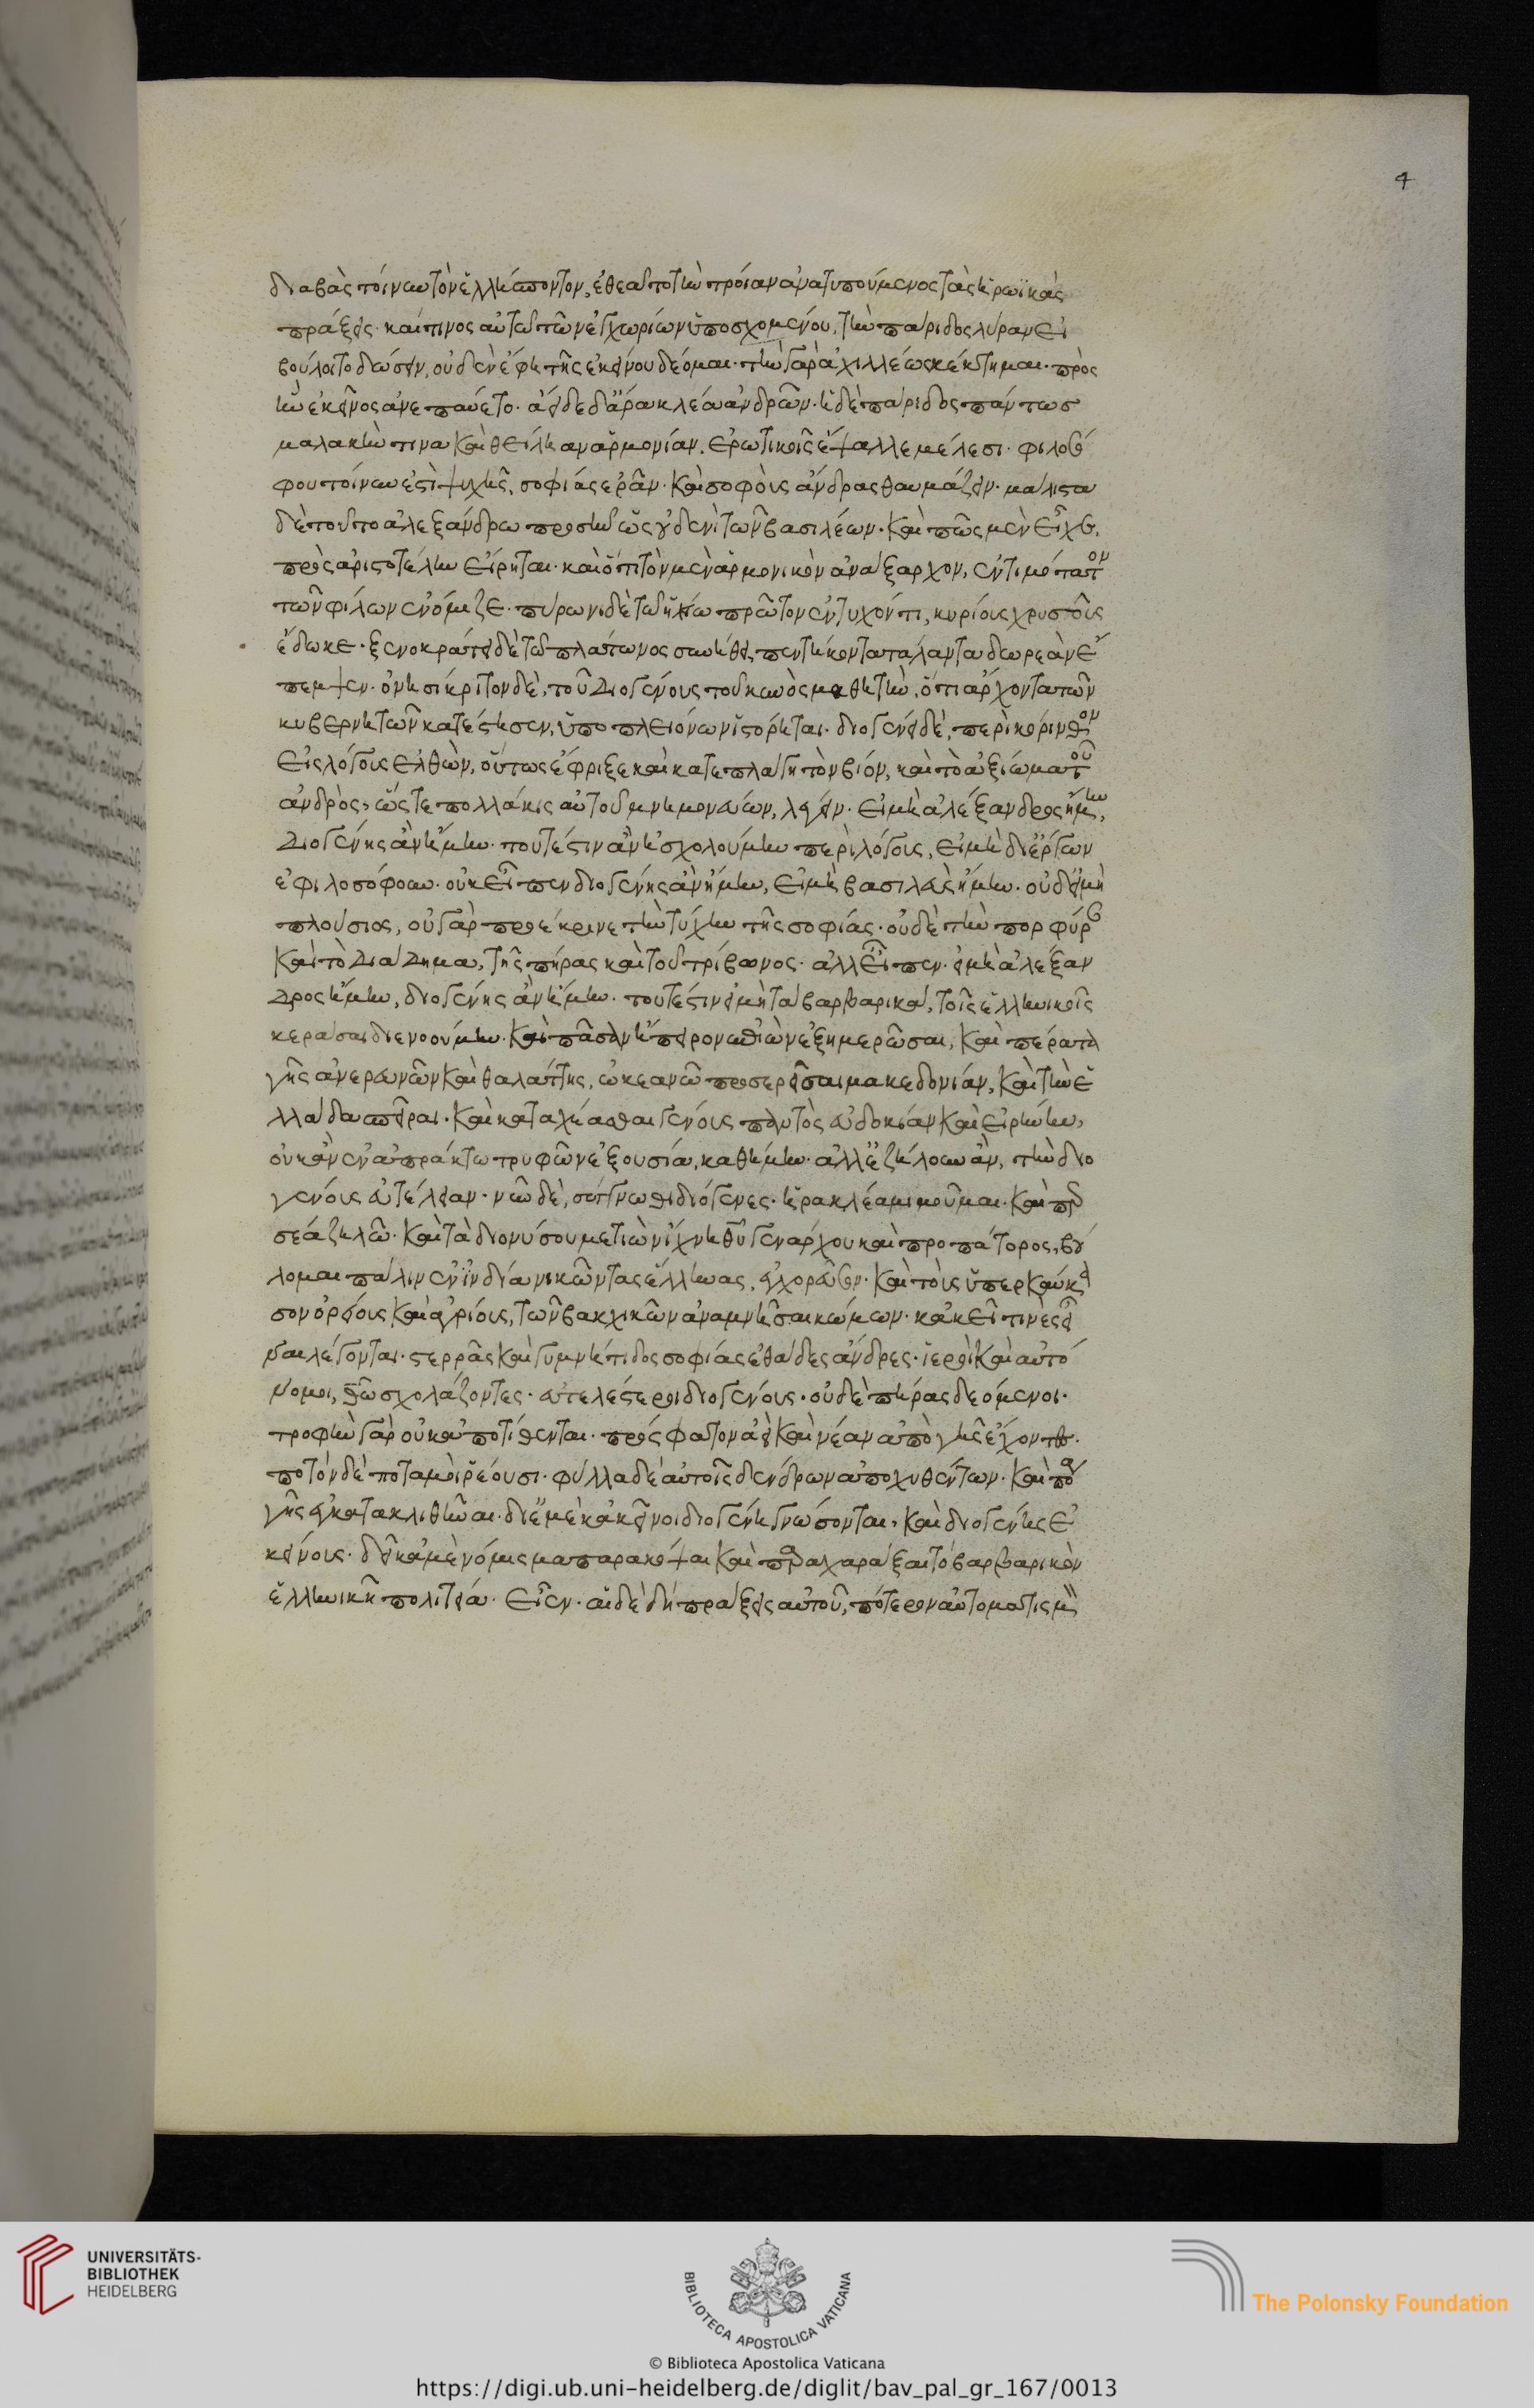 4
διαβὰς τοίνυν τὸν ἑλλήσποντον, ἐθεᾶτο τὴν τροίαν ἀνατυπούμενος τὰς ἡρωϊκὰς
πράξεις· καί τινος αὐτῶ τῶν ἐγχωρίων ὑποσχομένου, τὴν πάριδος λύραν εἰ
βούλοιτο δώσειν, οὐδὲν ἔφη τῆς ἐκείνου δέομαι· τὴν γὰρ ἀχιλλέως κέκτημαι· πρὸς
ἣν ἐκεῖνος ἀνεπαύετο· ἄειδε δ' ἄρα κλέα ἀνδρῶν· ἡ δὲ πάριδος πάντως
μαλακήν τινα καὶ θείλη αν ἁρμονίαν. ἐρωτικοῖς ἔψαλλε μέλεσι· φιλοσό
φου τοίνυν ἐστὶ ψυχῆς, σοφίας ἐρᾶν· καὶ σοφοὺς ἄνδρας θαυμάζειν· μάλιστα
δὲ τοῦτο ἀλεξάνδρω προσῆν ὡς οὐδενὶ τῶν βασιλέων· καὶ πῶς μὲν εἶχε,
πρὸς ἀριστοτέλην εἴρηται· καὶ ὅτι τὸν μὲν ἁρμονικὸν ἀνάξαρχον, ἐντιμότατον
τῶν φίλων ἐνόμιζε· πύρωνι δὲ τῶ ἠλείω πρῶτον ἐντυχόντι, μυρίους χρυσοῦς
ἔδωκε· ξενοκράτει δὲ τῶ πλάτωνος συνήθει, πεντήκοντα τάλαντα δωρεὰν ἔ
πεμψεν· ὀνησίκριτον δὲ, τοῦ διογένους τοῦ κυνὸς μαθητὴν, ὅτι ἄρχοντα τῶν
κυβερνητῶν κατέστησεν, ὑπὸ πλειόνων ἱστόρηται· διογένει δὲ, περὶ κόρινθον
εἰς λόγους ἐλθὼν, οὕτως ἔφριξε καὶ κατεπλάγη τὸν βίον, καὶ τὸ ἀξίωμα τοῦ
ἀνδρὸς, ὥστε πολλάκις αὐτοῦ μνημονεύων, λέγειν· εἰ μὴ ἀλέξανδρος ἤμην,
διογένης ἂν ἤμην· τουτέστιν ἂν ἠσχολούμην περὶ λόγους, εἰ μὴ δι' ἔργων
ἐφιλοσόφουν· οὐκ εἶπεν διογένης ἂν ἤμην, εἰ μὴ βασιλεὺς ἤμην· οὐδ' εἰ μὴ
πλούσιος, οὐ γὰρ προέκρινε τὴν τύχην τῆς σοφίας· οὐδὲ τὴν πορφύραν
καὶ τὸ διάδημα, τῆς πήρας καὶ τοῦ τρίβωνος· ἀλλ' εἶπεν· εἰ μὴ ἀλέξαν
δρος ἤμην, διογένης ἂν ἤμην· τουτέστιν εἰ μὴ τὰ βαρβαρικὰ, τοῖς ἑλληνικοῖς
κεράσαι διενοούμην· καὶ πᾶσαν ἤπειρον ἐπιὼν ἐξημερῶσαι, καὶ πέρατα
γῆς ἀνερευνῶν καὶ θαλάττης, ὠκεανῶ προσερεῖσαι μακεδονίαν, καὶ τὴν ἑ
λλάδα σπεῖραι· καὶ καταχέασθαι γένους παντὸς εὐδικίαν καὶ εἰρήνην,
οὐκ ἂν ἐν ἀπράκτω τρυφῶν ἐξουσία, καθήμην· ἀλλ' ἐζήλουν ἂν, τὴν διο
γένους εὐτέλειαν· νῦν δὲ, σύγγνωθι διόγενες· ἡρακλέα μιμοῦμαι· καὶ περ
σέα ζηλῶ· καὶ τὰ διονύσου μετιὼν ἴχνη θεοῦ γενάρχου καὶ προπάτορος, βού
λομαι πάλιν ἐν ἰνδία νικῶντας ἕλληνας, ἐγχορεῦσαι· καὶ τοὺς ὑπὲρ καύκα
σον ὀρείους καὶ ἀγρίους, τῶν βακχικῶν ἀναμνῆσαι κώμων· κἀκεῖ τινὲς εἶ
ναι λέγονται· στερρᾶς καὶ γυμνήτιδος σοφίας ἐθάδες ἄνδρες· ἱεροὶ καὶ αὐτό
νομοι, θεῶ σχολάζοντες· εὐτελέστεροι διογένους· οὐδὲ πήρας δεόμενοι·
τροφὴν γὰρ οὐκ ἀποτίθενται· πρόσφατον ἀεὶ καὶ νέαν ἀπὸ γῆς ἔχοντες·
ποτὸν δὲ ποταμοὶ ῥέουσι· φύλλα δὲ αὐτοῖς δένδρων ἀποχυθέντων· καὶ πόα
γῆς ἐγκατακλιθῆναι· δι' ἐμὲ κἀκεῖνοι διογένη γνώσονται, καὶ διογένης ἐ
κείνους· δεῖ κἀμὲ νόμισμα παρακόψαι καὶ παραχαράξαι τὸ βαρβαρικὸν
ἑλληνικῆ πολιτεία· εἶεν· αἱ δὲ δὴ πράξεις αὐτοῦ, πότερον αὐτοματισμὸν
UNIVERSITÄTS-
BIBLIOTHEK
HEIDELBERG
BIBLIOTECA APOSTOLICA VATICANA
The Polonsky Foundation
© Biblioteca Apostolica Vaticana
https://digi.ub.uni-heidelberg.de/diglit/bav_pal_gr_167/0013